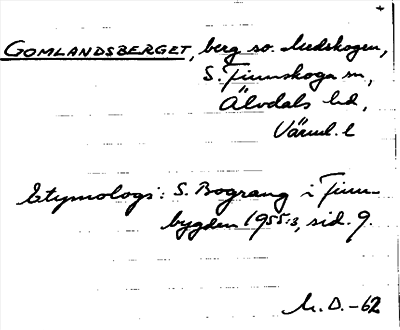 GOMLANDSBERGET, berg so. Medskogen,
S. Finnskoga sn,
Älvdals hd,
Värml. l
Etymologi: S. Bograng i Finn-
bygden 1955:3, sid. 9.
M. D. -62